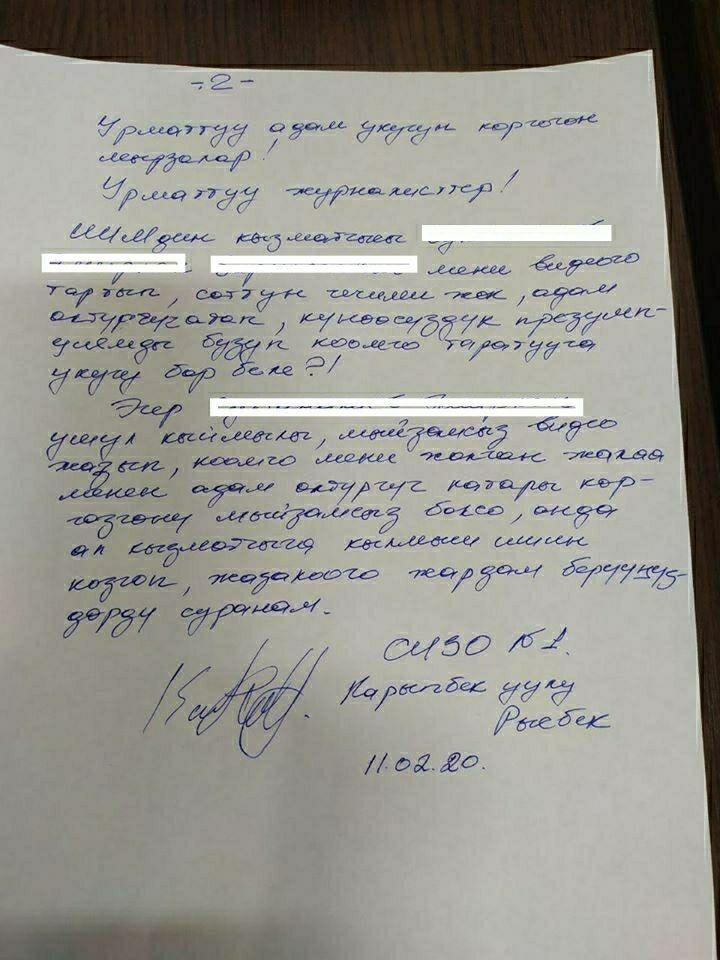 -2-
Урматтуу адам укугун коргогон
мырзалар!
Урматтуу журналисттер!
ИИМдин кызматчысы
мени видеого
тартып, соттун чечими жок, адам
олтургуч атап, кунөөсүздүк презумп-
циямды бузуп коомго таратууга
укугу бар беле?!
Эгер
ушул кыймылы, мыйзамсыз видео
жазып, коомго мени жалган жалаа
менен адам олтургуч катары кор-
гозгону мыйзамсыз болсо, анда
ал кызматчыга кылмыш ишин
козгоп, жазалоого жардам берууңуз-
дорду суранам.
СИЗО №1.
Карыпбек уулу
Рысбек
11.02.20.